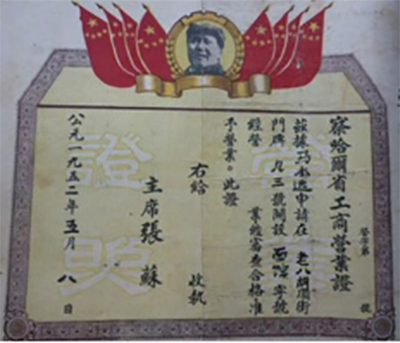 察哈爾省工商營業證
營字第 號
茲據 申請在 老八胡同街
門牌 九三號開設 西 號
經營 業經審查合格准
予營業。此證
右給 收執
主席張蘇
公元一九五二年五月八日
證